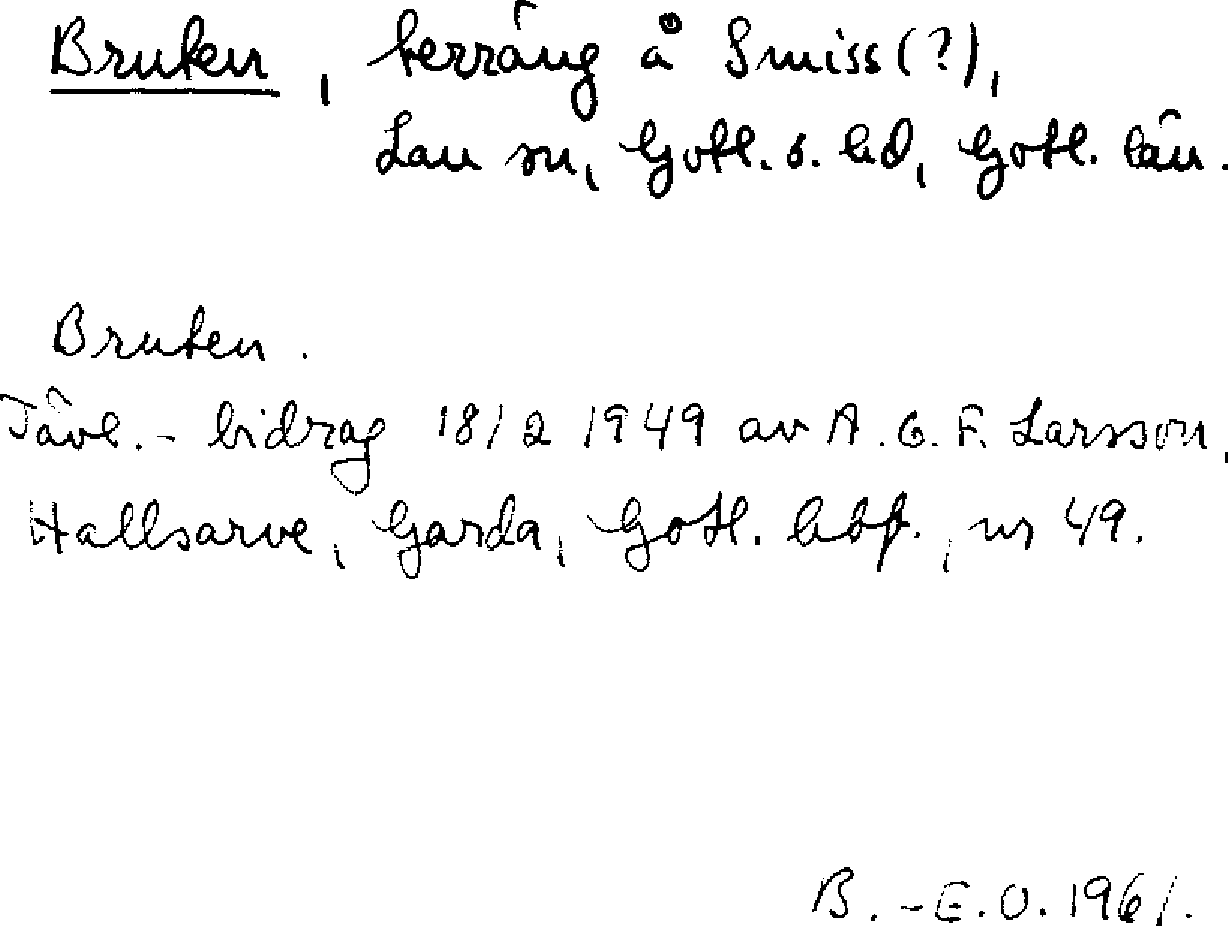 Bruten, terräng å Smiss(?),
Lau sn, Gotl. s. hd, Gotl. län.
Bruten.
Tävl.- bidrag 18/2 1949 av A. G. F. Larsson,
Hallsarve, Garda, Gotl. hbf., nr 49.
B.-E.O. 1961.